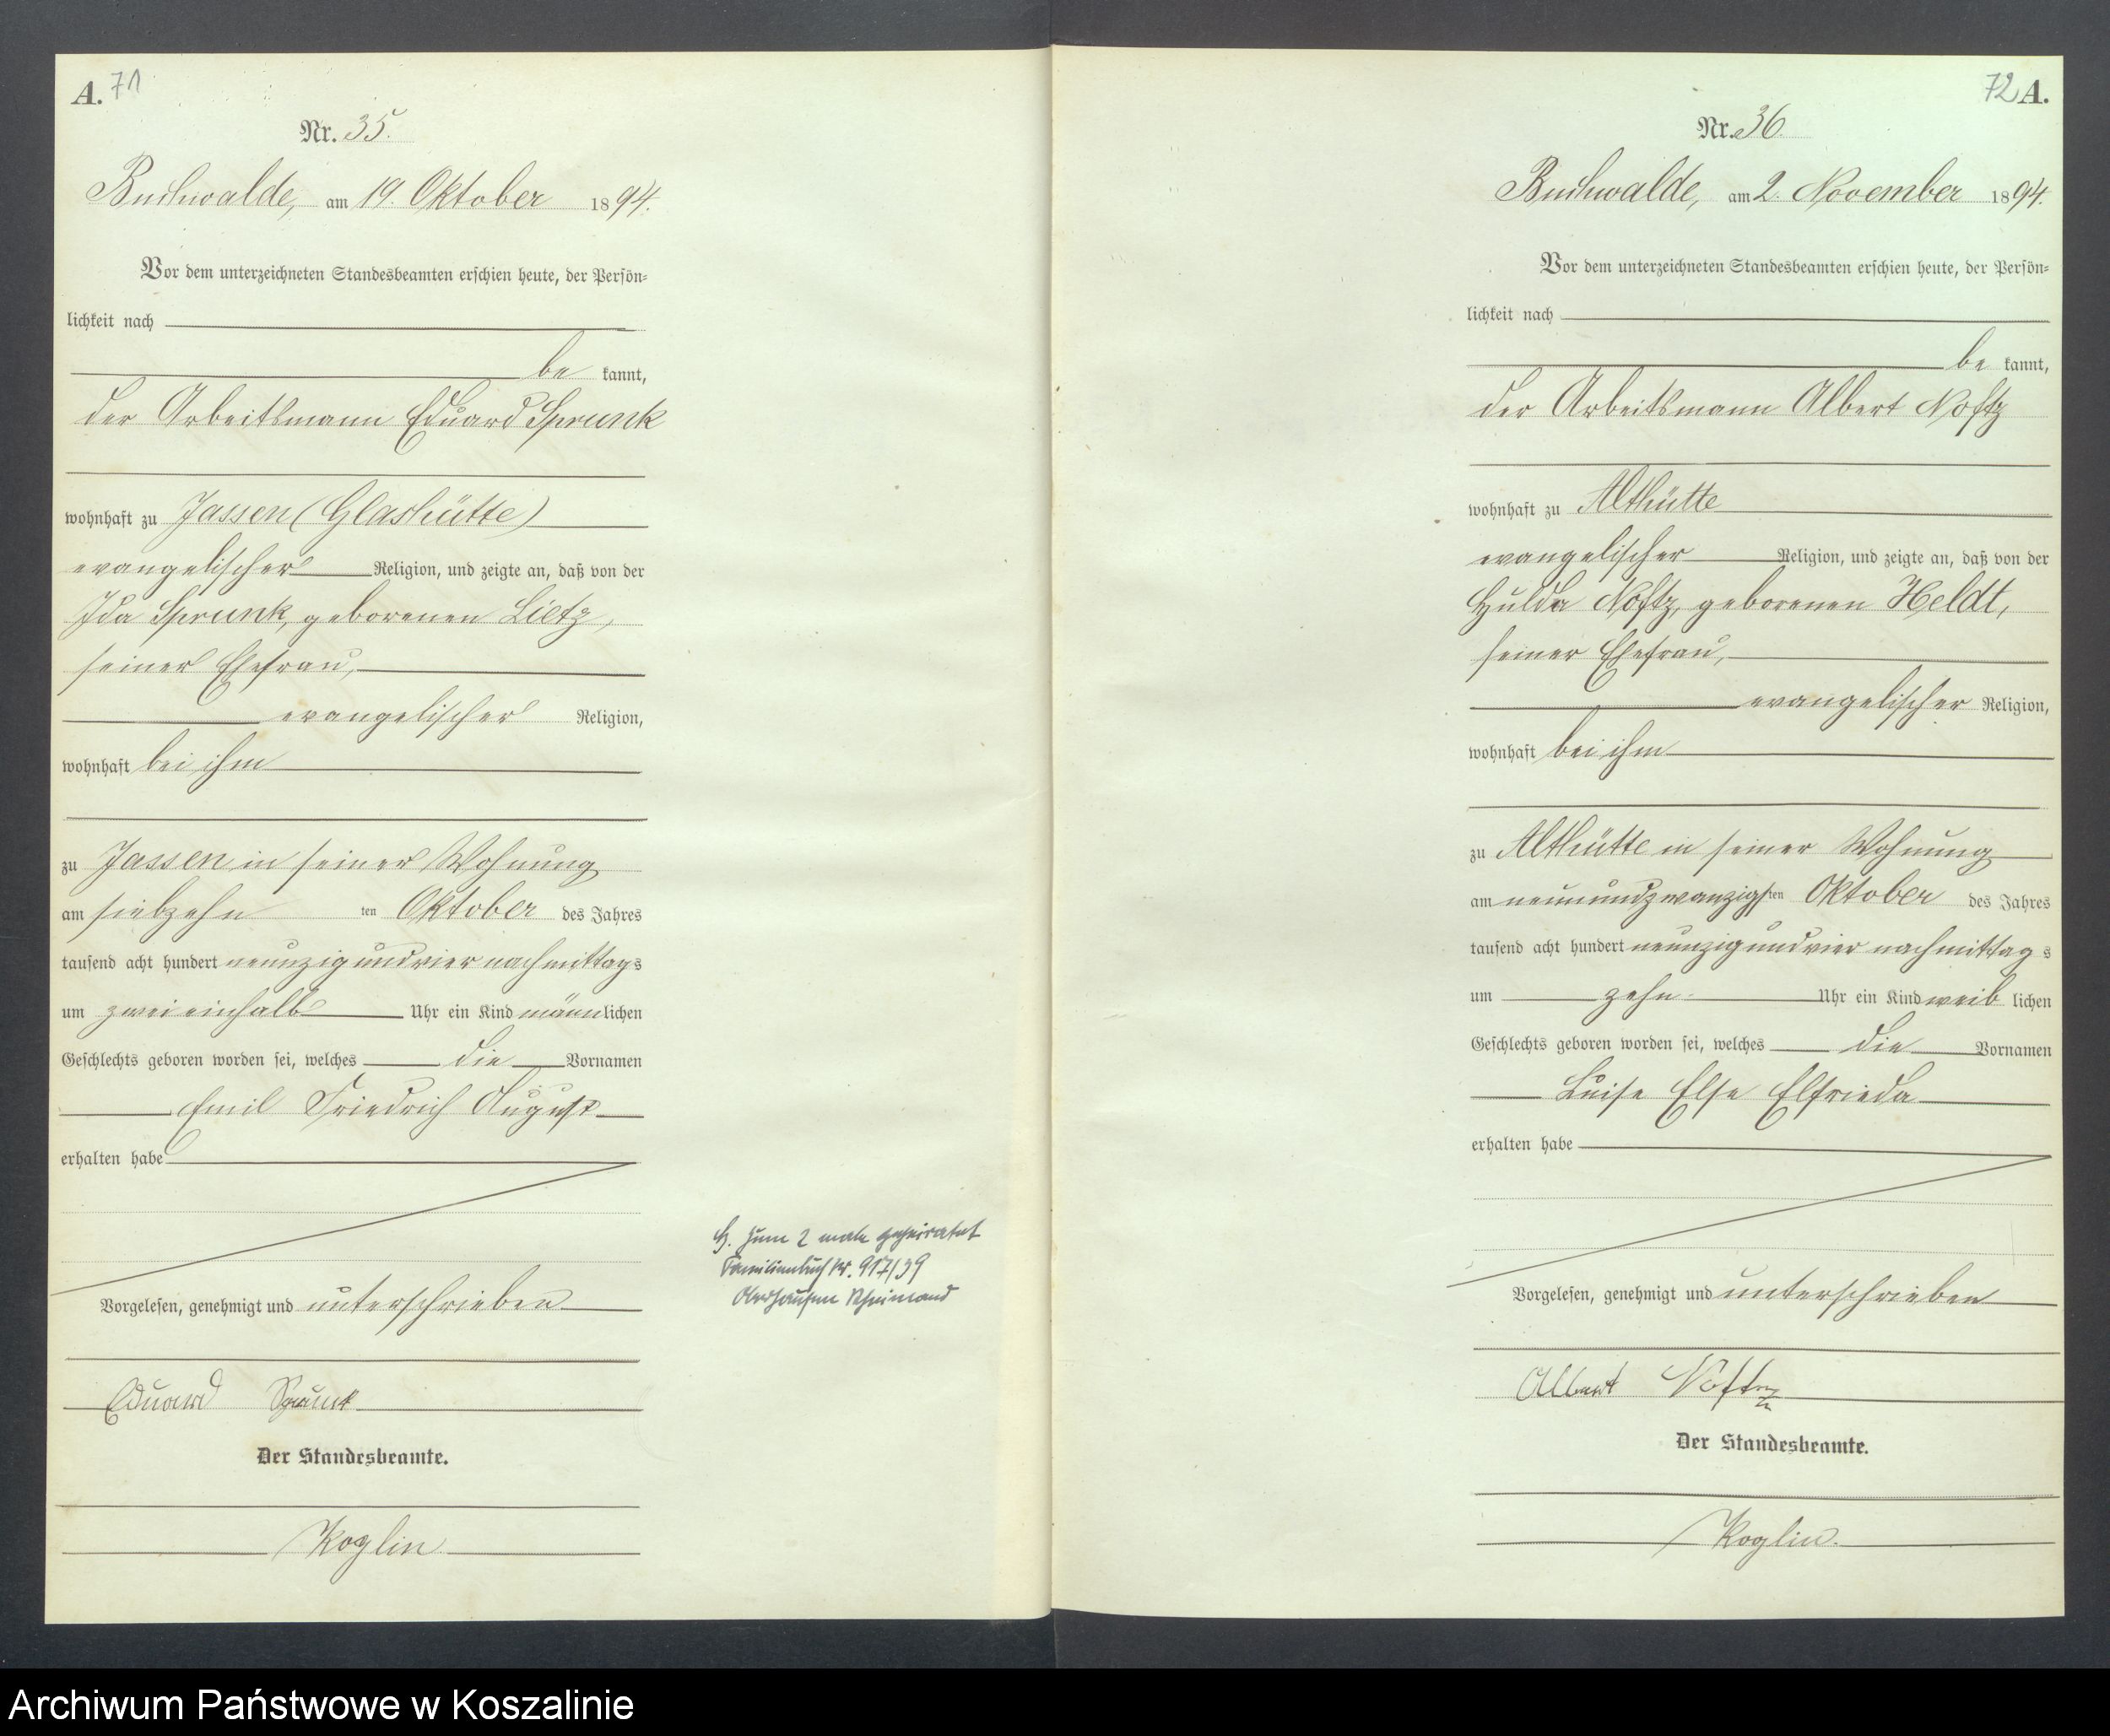 A. 71
Nr. 35.
Buchwalde, am 19. Oktober 1894.
Vor dem unterzeichneten Standesbeamten erschien heute, der Persön-
lichkeit nach
be kannt,
der Arbeitsmann Eduard Sprunk
wohnhaft zu Jassen (Glashütte)
evangelischer Religion, und zeigte an, daß von der
Ida Sprunk, geborenen Lietz,
seiner Ehefrau,
evangelischer Religion,
wohnhaft bei ihm
zu Jassen in seiner Wohnung
am siebzehn ten Oktober des Jahres
tausend acht hundert neunzig und vier nachmittags
um zwei einhalb Uhr ein Kind männlichen
Geschlechts geboren worden sei, welches die Vornamen
Emil Friedrich August
erhalten habe
Vorgelesen, genehmigt und unterschrieben
Eduard Sprunk
Der Standesbeamte.
Koglin
H. zum 2 male geheiratet
Familienbuch Nr. 917/39
Oberhausen Rheinland
72 A.
Nr. 36.
Buchwalde, am 2. November 1894.
Vor dem unterzeichneten Standesbeamten erschien heute, der Persön-
lichkeit nach
be kannt,
der Arbeitsmann Albert Noftz
wohnhaft zu Althütte
evangelischer Religion, und zeigte an, daß von der
Hulda Noftz, geborenen Heldt,
seiner Ehefrau,
evangelischer Religion,
wohnhaft bei ihm
zu Althütte in seiner Wohnung
am neunundzwanzigsten Oktober des Jahres
tausend acht hundert neunzig und vier nachmittags
um zehn Uhr ein Kind weib lichen
Geschlechts geboren worden sei, welches die Vornamen
Luise Else Elfrieda
erhalten habe
Vorgelesen, genehmigt und unterschrieben
Albert Noftz
Der Standesbeamte.
Koglin.
Archiwum Państwowe w Koszalinie